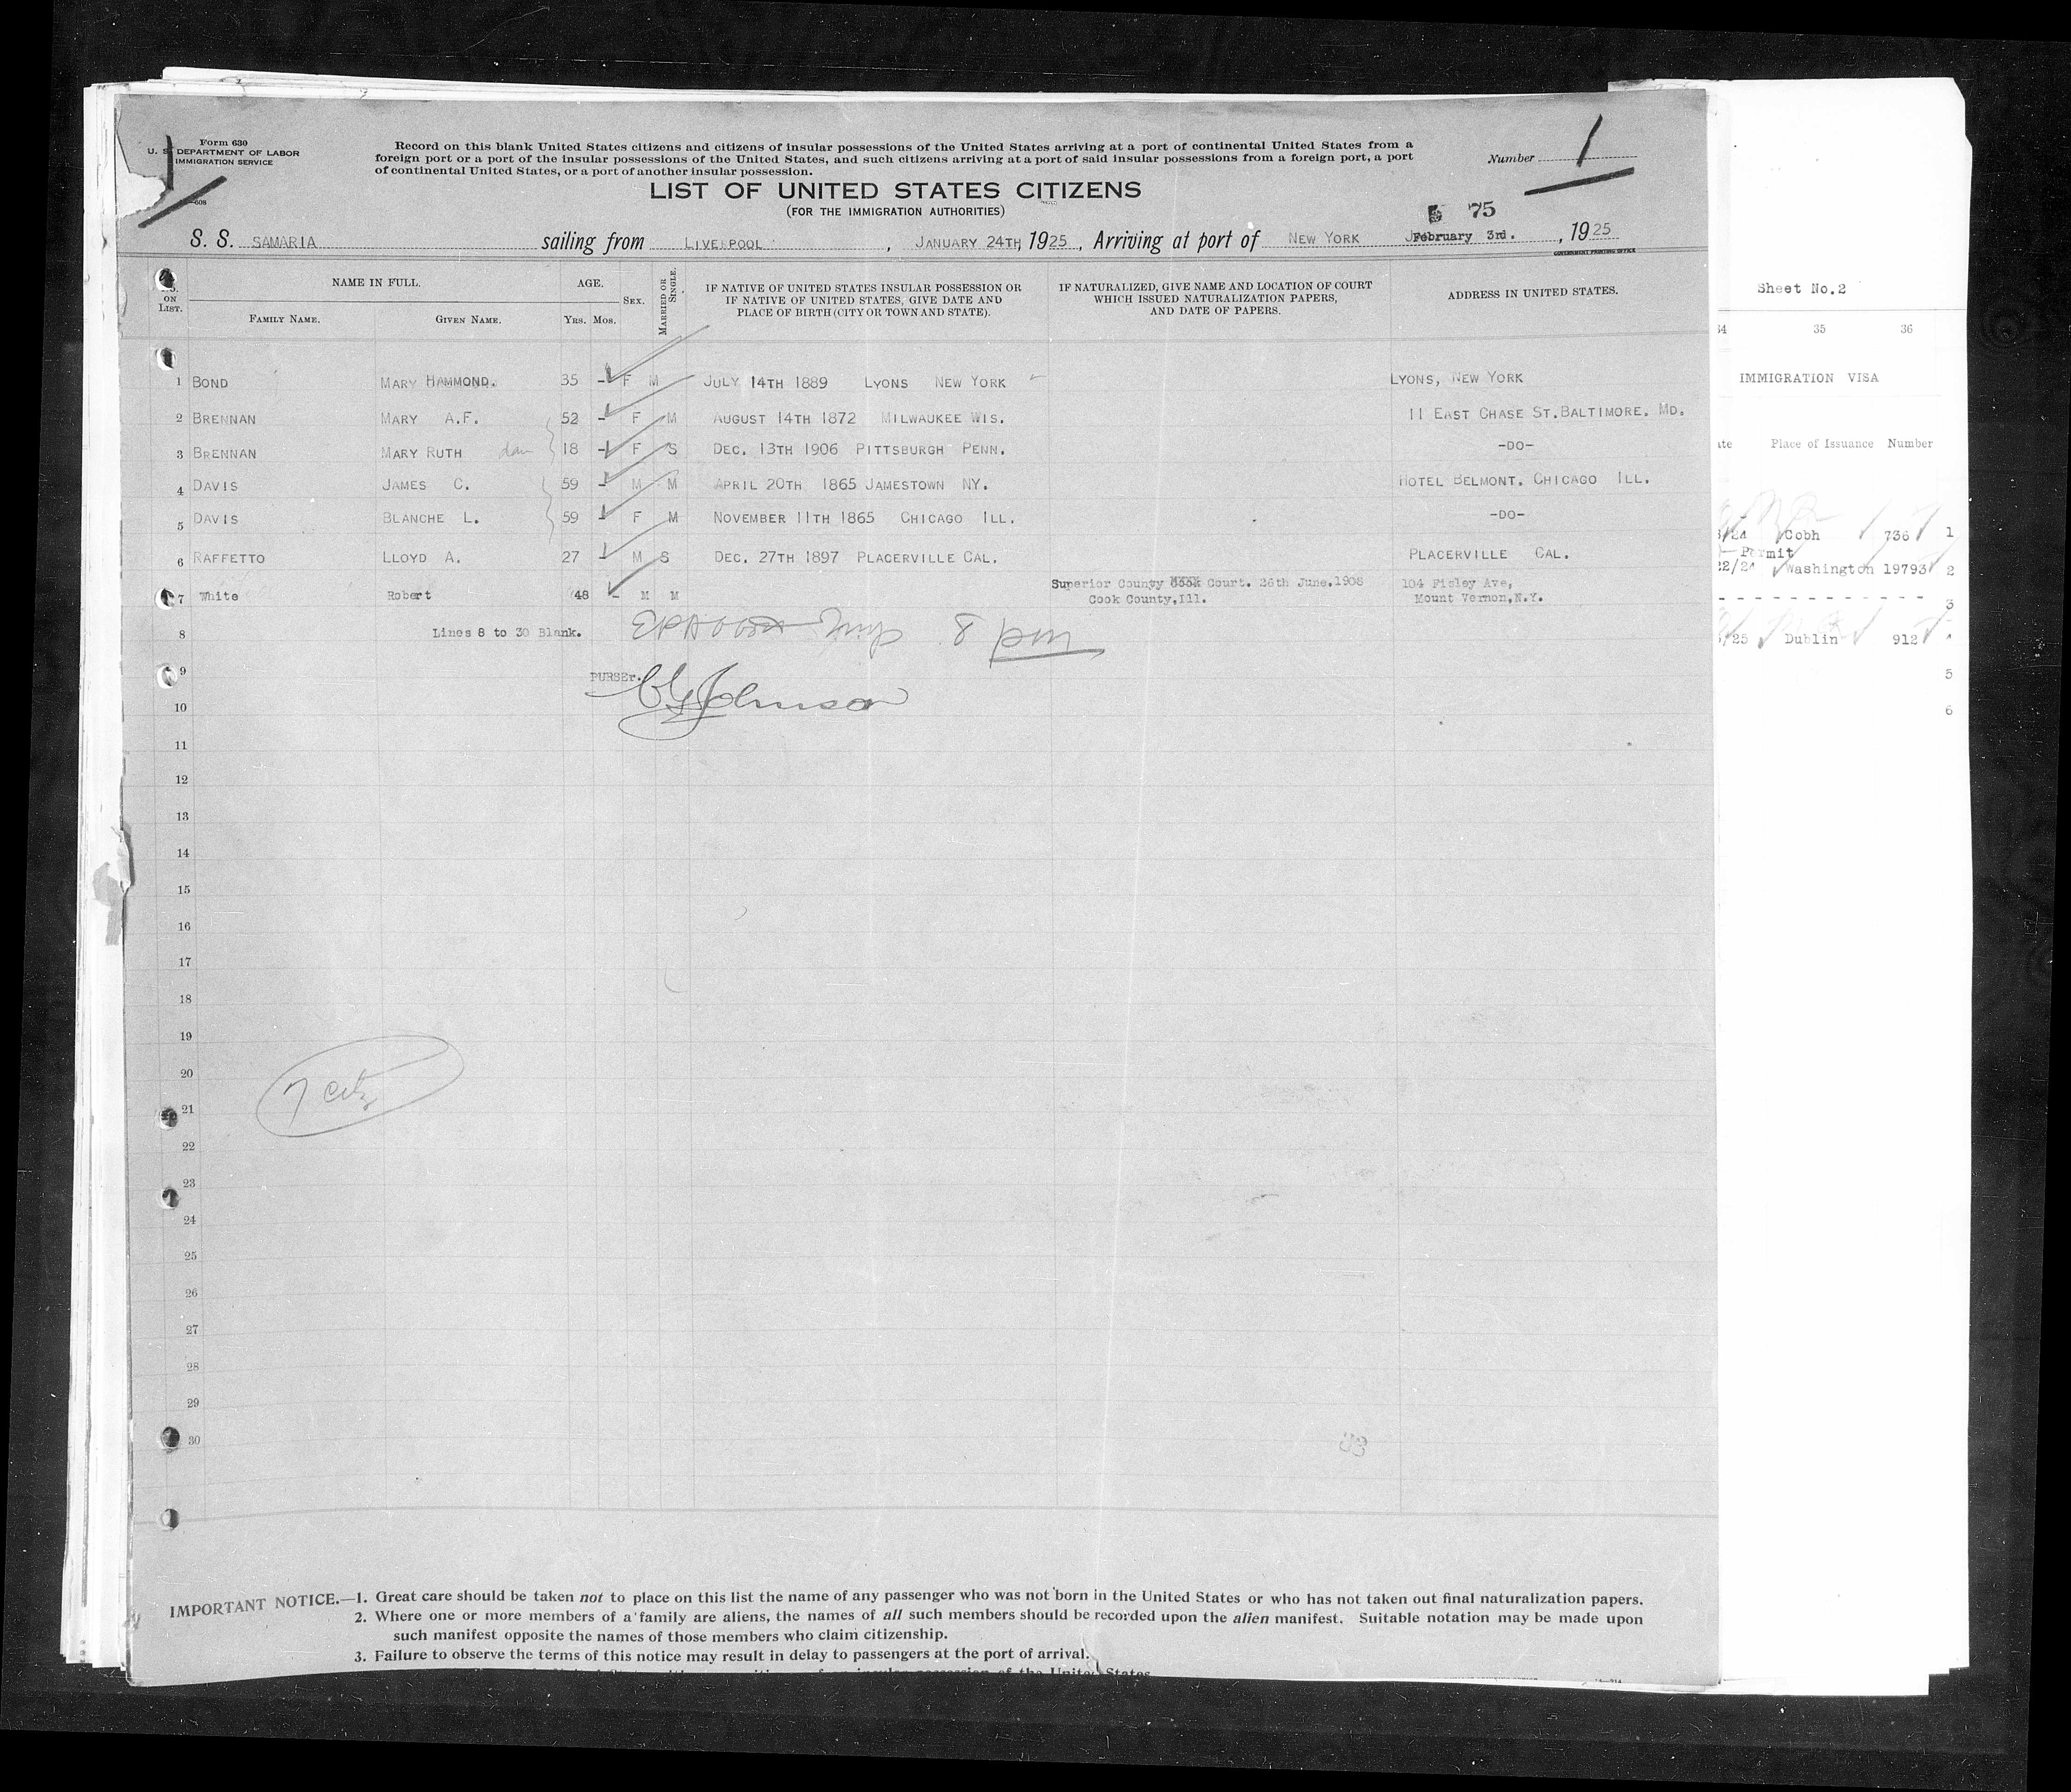 Form 630
U. S. DEPARTMENT OF LABOR
IMMIGRATION SERVICE
—608
Record on this blank United States citizens and citizens of insular possessions of the United States arriving at a port of continental United States from a
foreign port or a port of the insular possessions of the United States, and such citizens arriving at a port of said insular possessions from a foreign port, a port
of continental United States, or a port of another insular possession.
Number 1
LIST OF UNITED STATES CITIZENS
(FOR THE IMMIGRATION AUTHORITIES)
75
S. S. SAMARIA sailing from LIVERPOOL, JANUARY 24TH, 1925, Arriving at port of NEW YORK February 3rd., 1925
GOVERNMENT PRINTING OFFICE
ON LIST.
NAME IN FULL.
FAMILY NAME. GIVEN NAME.
AGE.
YRS. MOS.
SEX.
MARRIED OR SINGLE.
IF NATIVE OF UNITED STATES INSULAR POSSESSION OR
IF NATIVE OF UNITED STATES, GIVE DATE AND
PLACE OF BIRTH (CITY OR TOWN AND STATE).
IF NATURALIZED, GIVE NAME AND LOCATION OF COURT
WHICH ISSUED NATURALIZATION PAPERS,
AND DATE OF PAPERS.
ADDRESS IN UNITED STATES.
1 BOND MARY HAMMOND. 35 - F M JULY 14TH 1889 LYONS NEW YORK LYONS, NEW YORK
2 BRENNAN MARY A.F. 52 - F M AUGUST 14TH 1872 MILWAUKEE WIS. 11 EAST CHASE ST.BALTIMORE. MD.
3 BRENNAN MARY RUTH dau 18 - F S DEC. 13TH 1906 PITTSBURGH PENN. -DO-
4 DAVIS JAMES C. 59 - M M APRIL 20TH 1865 JAMESTOWN NY. HOTEL BELMONT. CHICAGO ILL.
5 DAVIS BLANCHE L. 59 - F M NOVEMBER 11TH 1865 CHICAGO ILL. -DO-
6 RAFFETTO LLOYD A. 27 - M S DEC. 27TH 1897 PLACERVILLE CAL. PLACERVILLE CAL.
7 White Robert 48 - M M Superior County Court. 26th June.1908 104 Fisley Ave,
Cook County,Ill. Mount Vernon,N.Y.
8 Lines 8 to 30 Blank. 8 pm
9 PURSEr. CG Johnson
10
11
12
13
14
15
16
17
18
19
20
7 citz
21
22
23
24
25
26
27
28
29
30
IMPORTANT NOTICE.—1. Great care should be taken not to place on this list the name of any passenger who was not born in the United States or who has not taken out final naturalization papers.
2. Where one or more members of a family are aliens, the names of all such members should be recorded upon the alien manifest. Suitable notation may be made upon
such manifest opposite the names of those members who claim citizenship.
3. Failure to observe the terms of this notice may result in delay to passengers at the port of arrival.
Sheet No.2
34 35 36
IMMIGRATION VISA
Place of Issuance Number
/24 Cobh 736 1
Permit
22/24 Washington 19793 2
3
/25 Dublin 912
5
6